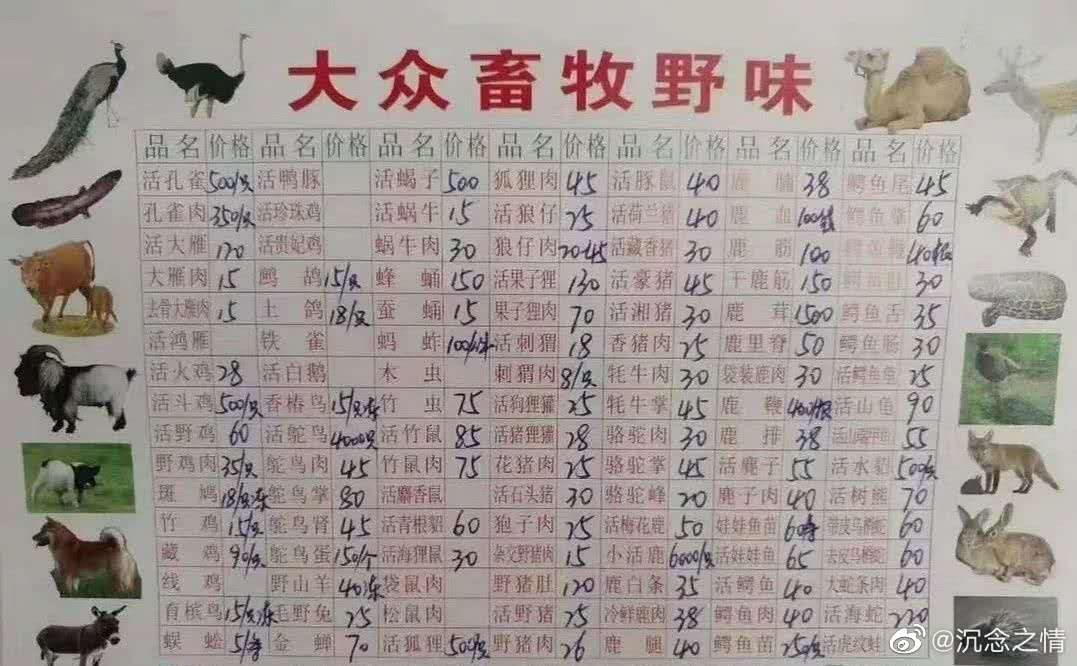 大众畜牧野味
品名 价格 品名 价格 品名 价格 品名 价格 品名 价格 品名 价格 品名 价格
活孔雀 500/只 活鸭豚 活蝎子 500 狐狸肉 45 活豚鼠 40 鹿腩 38 鳄鱼尾 45
孔雀肉 350/只 活珍珠鸡 活蜗牛 15 活狼仔 25 活荷兰猪 40 鹿血 鳄鱼掌 60
活大雁 120 活贵妃鸡 蜗牛肉 30 狼仔肉 20-45 活藏香猪 30 鹿筋 100 鳄鱼
大雁肉 15 鹧鸪 15/只 蜂蛹 150 活果子狸 130 活豪猪 45 干鹿筋 150 鳄鱼肚 30
去骨大雁肉 15 土鸽 18/只 蚕蛹 15 果子狸肉 70 活湘猪 30 鹿茸 1500 鳄鱼舌 35
活鸿雁 铁雀 蚂蚱 活刺猬 18 香猪肉 25 鹿里脊 50 鳄鱼肠 30
活火鸡 28 活白鹅 木虫 刺猬肉 8/只 牦牛肉 30 袋装鹿肉 30 活鳄鱼龟 25
活斗鸡 500/只 香椿鸟 15/只冻 竹虫 75 活狗狸獾 25 牦牛掌 45 鹿鞭 活山龟 90
活野鸡 60 活鸵鸟 4000只 活竹鼠 85 活猪狸獾 28 骆驼肉 30 鹿排 38 55
野鸡肉 35/只 鸵鸟肉 45 竹鼠肉 75 花猪肉 25 骆驼掌 45 活麂子 55 活水貂 500/只
斑鸠 18/只冻 鸵鸟掌 80 活麝香鼠 活石头猪 30 骆驼峰 20 麂子肉 40 活树熊 70
竹鸡 15/只 鸵鸟肾 45 活青根貂 60 狍子肉 25 活梅花鹿 50 娃娃鱼苗 带皮乌梢蛇 60
藏鸡 90/只 鸵鸟蛋 150/个 活海狸鼠 30 杂交野猪肉 15 小活鹿 6000/只 活娃娃鱼 65 去皮乌梢蛇 60
线鸡 野山羊 40冻 袋鼠肉 野猪肚 120 鹿白条 35 活鳄鱼 40 大蛇条肉 40
育槟鸟 15/只冻 毛野兔 25 松鼠肉 活野猪 25 冷鲜鹿肉 38 鳄鱼肉 40 活海蛇 220
蜈蚣 金蝉 70 活狐狸 500/只 野猪肉 26 鹿腿 40 鳄鱼苗 250/只 活虎纹蛙
@沉念之情